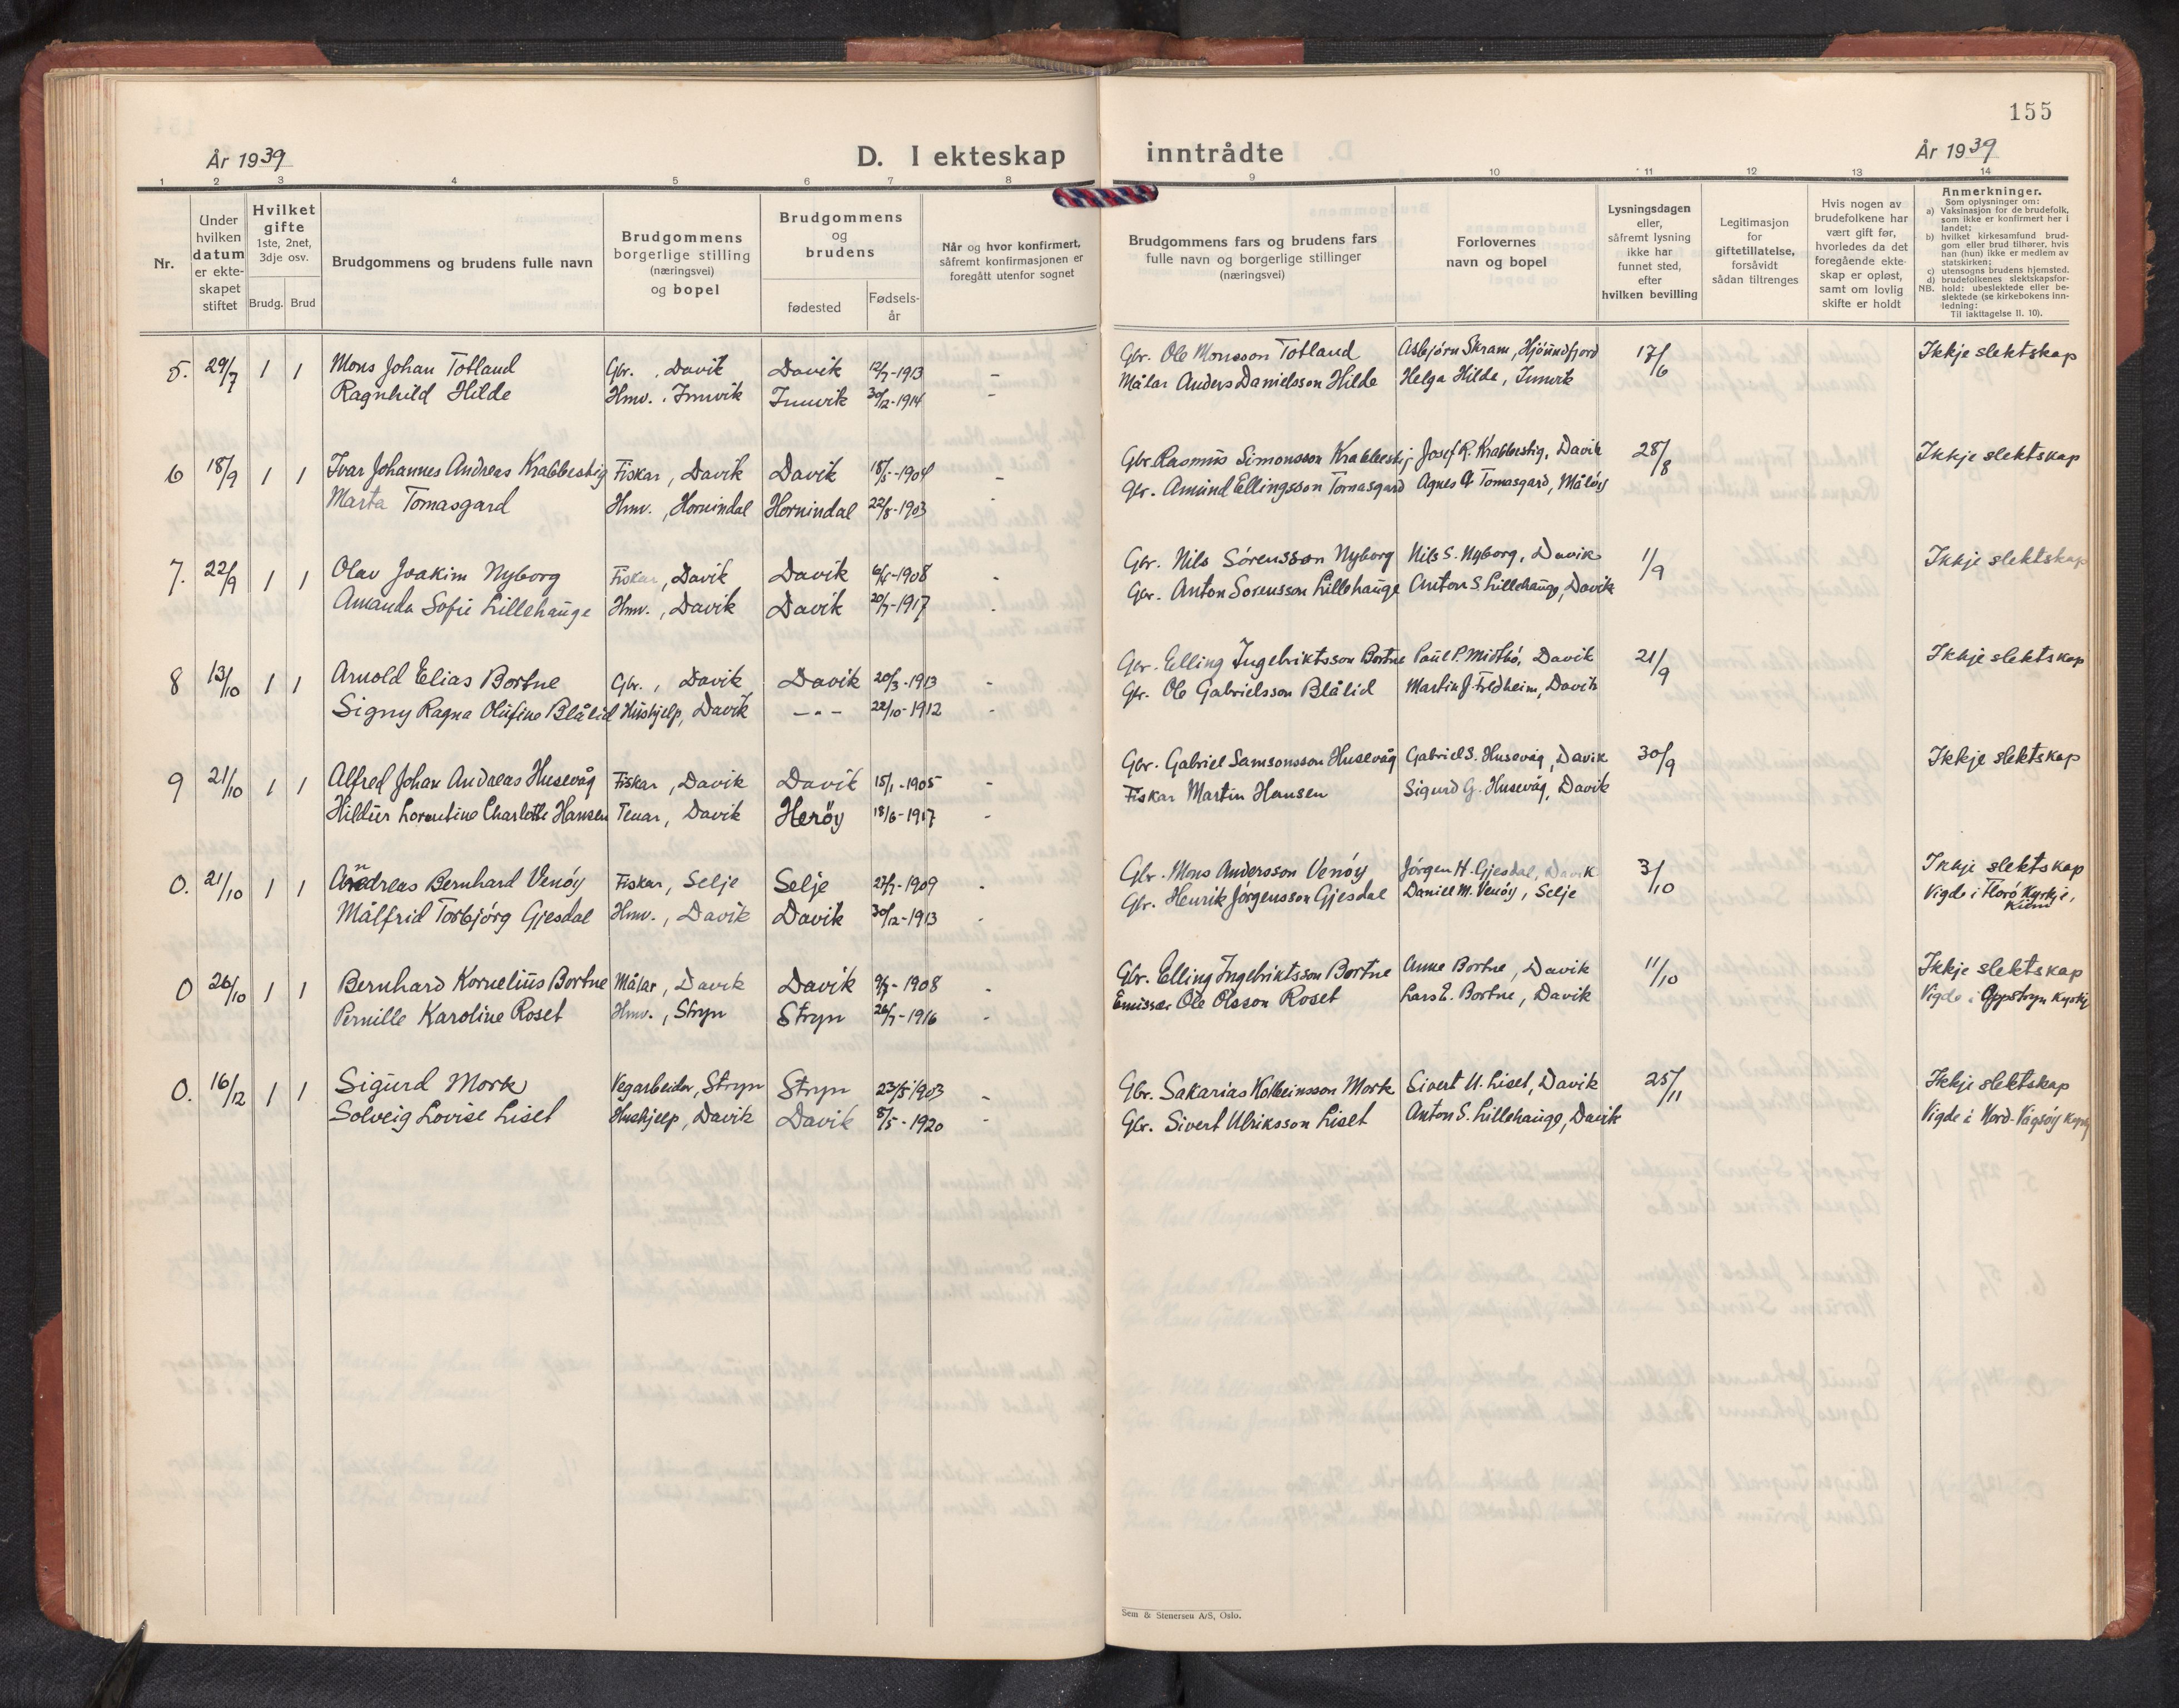 155
År 1939
D. I ekteskap inntrådte
År 1939
1 2 3 4 5 6 7 8 9 10 11 12 13 14
Nr.
Under hvilken datum er ekteskapet stiftet
Hvilket gifte 1ste, 2net, 3dje osv.
Brudg. Brud
Brudgommens og brudens fulle navn
Brudgommens borgerlige stilling (næringsvei) og bopel
Brudgommens og brudens
fødested
Fødselsår
Når og hvor konfirmert, såfremt konfirmasjonen er foregått utenfor sognet
Brudgommens fars og brudens fars fulle navn og borgerlige stillinger (næringsvei)
Forlovernes navn og bopel
Lysningsdagen eller, såfremt lysning ikke har funnet sted, efter hvilken bevilling
Legitimasjon for giftetillatelse, forsåvidt sådan tiltrenges
Hvis nogen av brudefolkene har vært gift før, hvorledes da det foregående ekteskap er opløst, samt om lovlig skifte er holdt
Anmerkninger.
Som oplysninger om:
a) Vaksinasjon for de brudefolk, som ikke er konfirmert her i landet;
b) hvilket kirkesamfund brudgom eller brud tilhører, hvis han (hun) ikke er medlem av statskirken;
c) utensogns brudens hjemsted.
d) brudefolkenes slektskapsforhold: ubeslektede eller beslektede (se kirkebokens innledning:
NB. Til iakttagelse II. 10).
5. 29/7 1 1 Mons Johan Totland Gbr. , Davik Davik 12/7-1913 - Gbr. Ole Monsson Totland Asbjørn Skram, Hjørundfjord 17/6 Ikkje slektskap
Ragnhild Hilde Hmv. , Innvik Innvik 30/12-1914 - Målar Anders Danielsson Hilde Helga Hilde, Innvik
6 18/9 1 1 Ivar Johannes Andreas Krabbestig Fiskar, Davik Davik 18/5-1904 - Gbr. Rasmus Simonsson Krabbestig Josef R. Krabbestig, Davik 28/8 Ikkje slektskap
Marta Tomasgard Hmv. , Hornindal Hornindal 22/8-1903 - Gbr. Amund Ellingsson Tomasgard Agnes A Tomasgard, Måløy
7. 22/9 1 1 Olav Joakim Nyborg Fiskar, Davik Davik 1908 - Gbr. Nils Sörensson Nyborg Nils S. Nyborg, Davik 1/9 Ikkje slektskap
Amanda Sofie Lillehauge Hmv. , Davik Davik 20/7-1917 - Gbr. Anton Sørensson Lillehauge Anton S. Lillehauge, Davik
8 13/10 1 1 Arnold Elias Bortne Gbr. , Davik Davik 20/3-1913 - Gbr. Elling Ingebriktsson Bortne Paul P. Midtbö, Davik 21/9 Ikkje slektskap
Signy Ragna Olufine Blålid Hushjelp, Davik -"- 22/10-1912 - Gbr. Ole Gabrielsson Blålid Martin J. Feldheim, Davik
9 21/10 1 1 Alfred Johan Andreas Husevåg Fiskar, Davik Davik 15/1-1905 - Gbr. Gabriel Samsonsson Husevåg Gabriel S. Husevåg, Davik 30/9 Ikkje slektskap
Hildur Lorentine Charlotte Hansen Tenar, Davik Herøy 18/6-1917 - Fiskar Martin Hansen Sigurd G. Husevåg, Davik
0. 21/10 1 1 Andreas Bernhard Venöy Fiskar, Selje Selje 27/7-1909 - Gbr. Mons Andersson Venöy Jörgen H. Gjesdal, Davik 3/10 Ikkje slektskap
Målfrid Torbjörg Gjesdal Hmv. , Davik Davik 30/12-1913 - Gbr. Henrik Jørgensson Gjesdal Daniel M. Venöy, Selje Vigde i Florö Kyrkje, Kinn
0 26/10 1 1 Bernhard Kornelius Bortne Målar, Davik Davik 1908 - Gbr. Elling Ingebriktsson Bortne Anne Bortne, Davik 11/10 Ikkje slektskap
Pernille Karoline Roset Hmv. , Stryn Stryn 26/7-1916 - Emissær Ole Olsson Roset Lars E. Bortne, Davik Vigde i Oppstryn Kyrkj
0. 16/12 1 1 Sigurd Mork Vegarbeider, Stryn Stryn 23/5 1903 - Gbr. Sakarias Kolbeinsson Mork Sivert U. Liset, Davik 25/11 Ikkje slektskap
Solveig Lovise Liset Hushjelp, Davik Davik 8/5-1920 - Gbr. Sivert Ulriksson Liset Anton S. Lillehauge, Davik Vigde i Nord-Vågsøy
Sem & Stenersen A/S, Oslo.